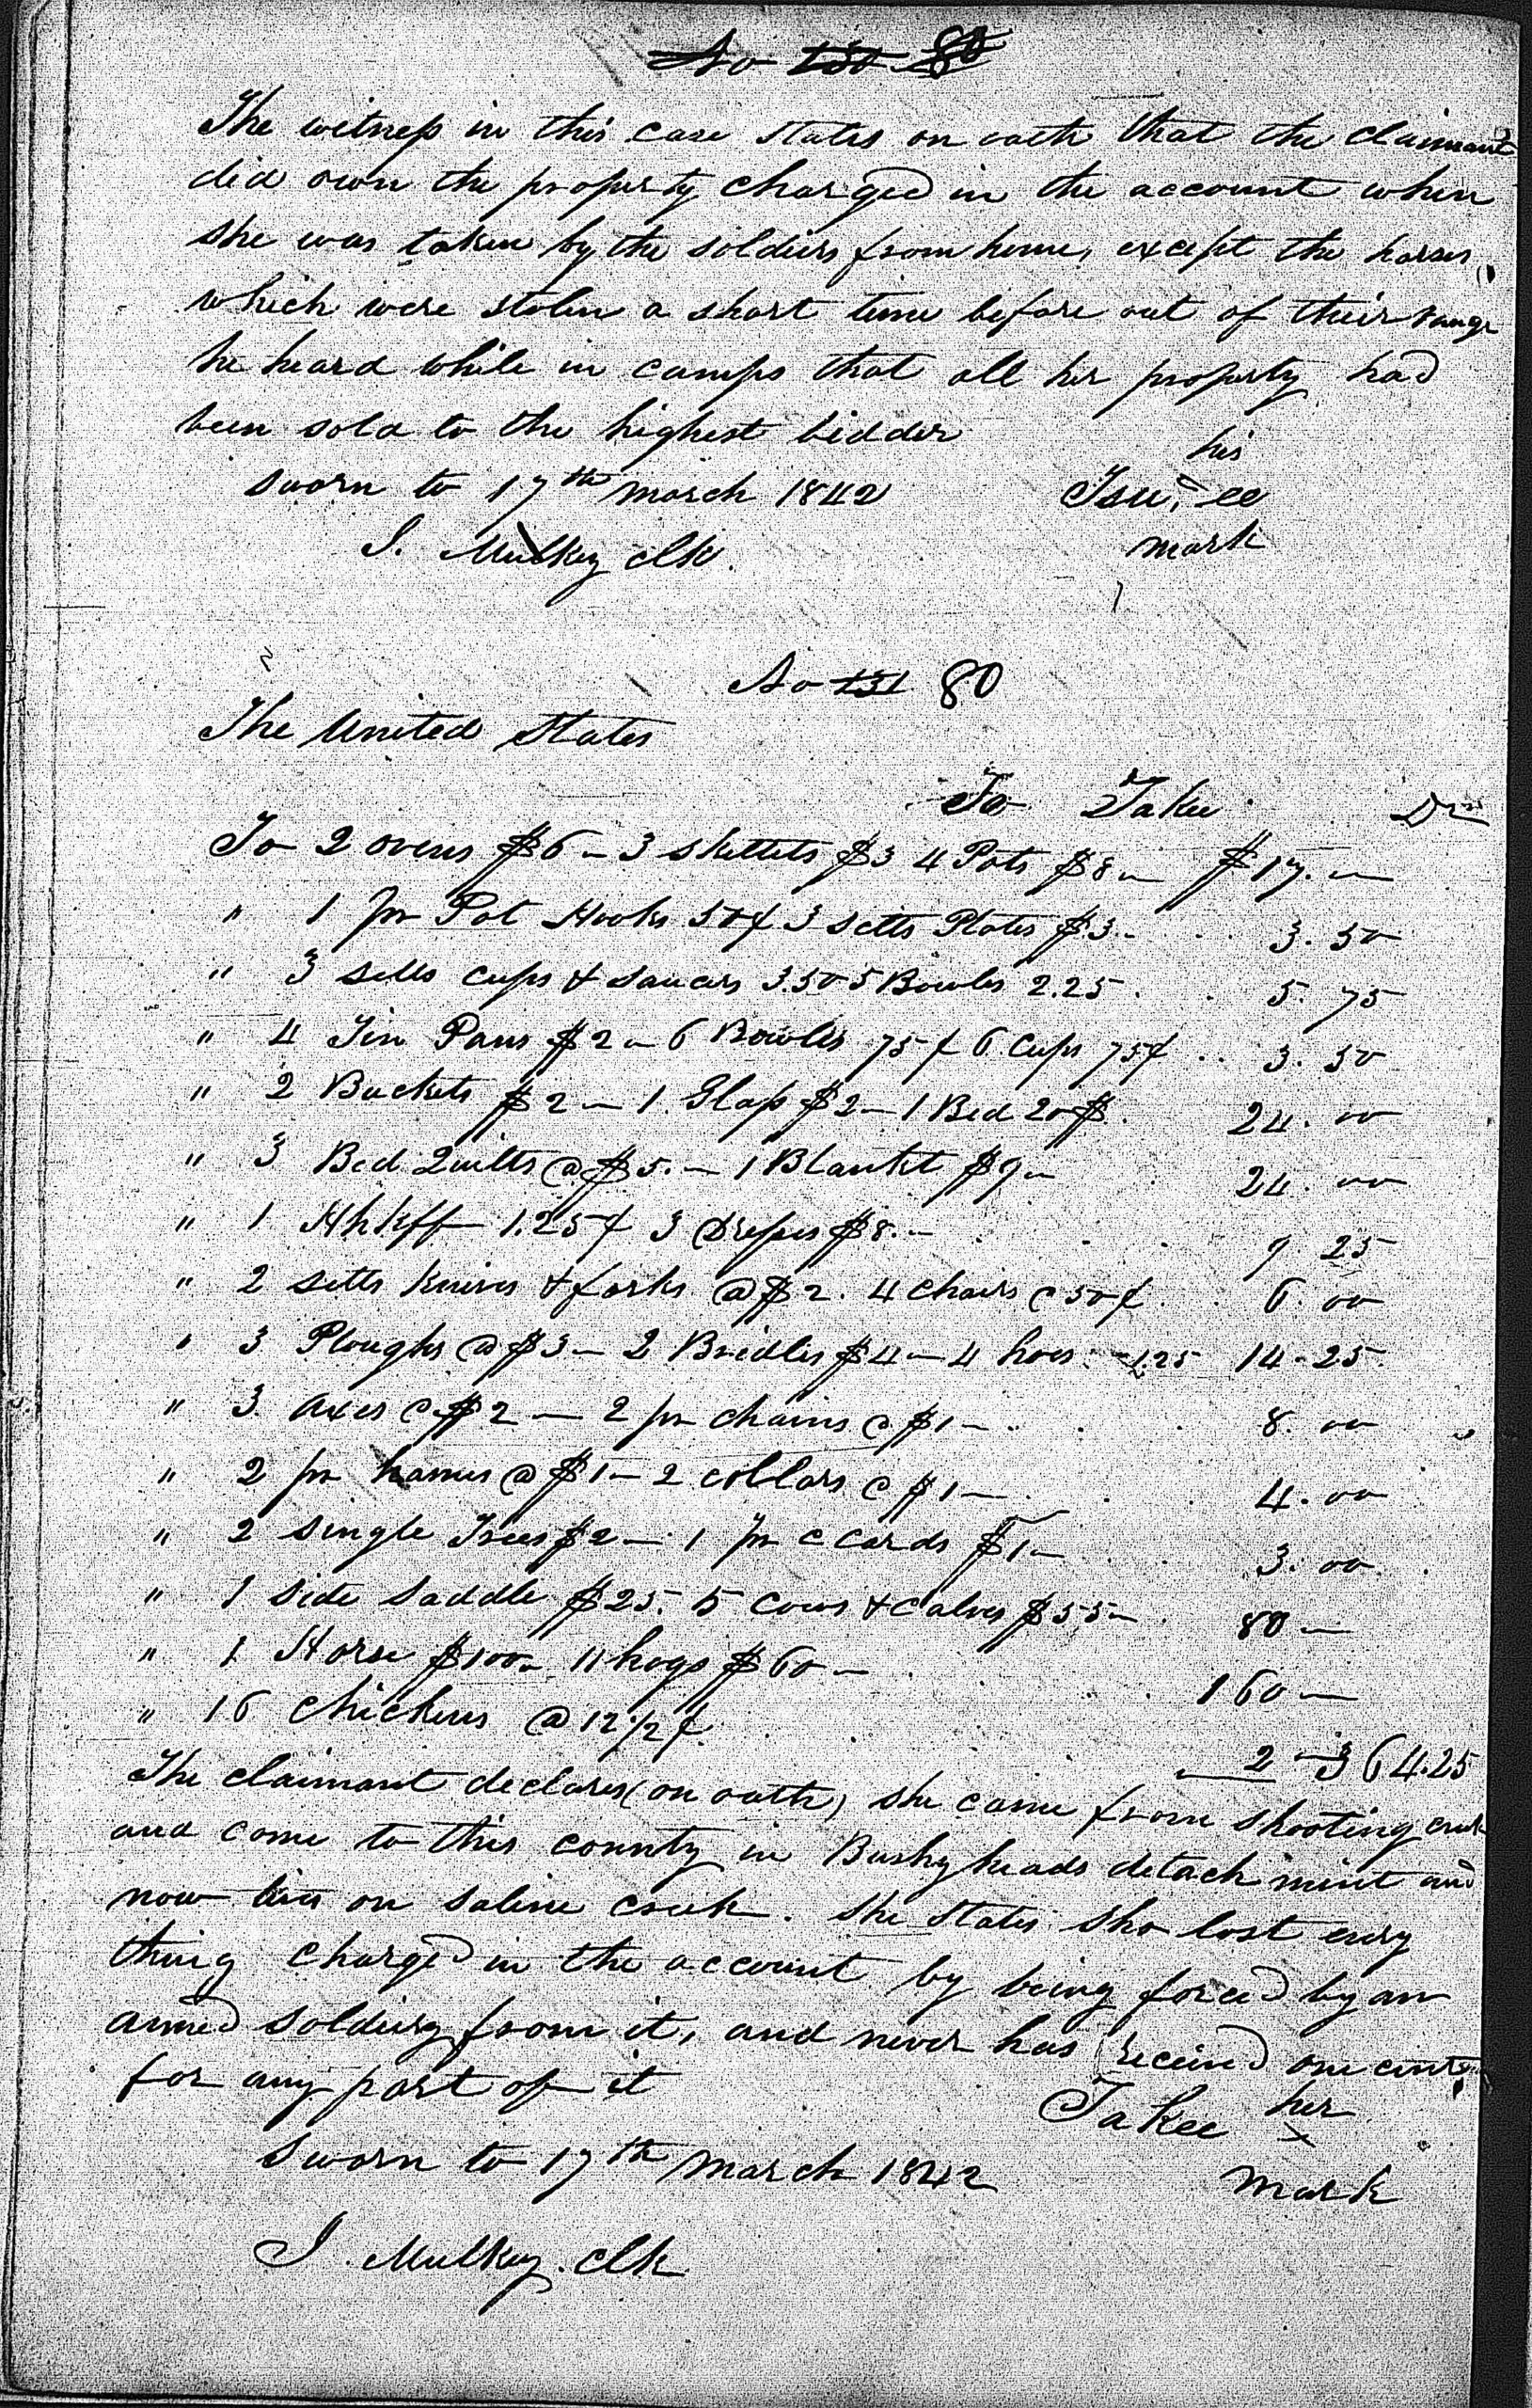 No 130 80
The witness in this case states on oath that the claimant
did own the property charged in the account when
she was taken by the soldiers from home, except the horses,
which were stolen a short time before out of their range
he heard while in camps that all her property had
been sold to the highest bidder
his
sworn to 17th march 1842
mark
J. Mulkey clk.
No 131 80
The United States
To Takee Dr
To 2 ovens $6 – 3 skillets $3 4 Pots $8 – $17. –
" 1 pr Pot Hooks 50¢ 3 setts Plates $3. – 3. 50
" 3 setts cups & saucers 3.50 5 Bowles 2.25 . 5. 75
" 4 Tin Pans $2 – 6 Bowles 75¢ 6 Cups 75¢ . . 3. 50
" 2 Buckets $2 – 1 Glass $2 – 1 Bed 20$ . 24. 00
" 3 Bed Quilts @ $5. – 1 Blanket $9 – 24. 00
" 1 Hhkff 1.25¢ 3 Dresses $8. – 9. 25
" 2 setts knives & forks @ $2. 4 chairs @ 50¢ . 6. 00
" 3 Ploughs @ $3 – 2 Bridles $4 – 4 hoes – 1.25 14. 25
" 3 axes @ $2 – 2 pr chains @ $1 – . 8. 00
" 2 pr hames @ $1 – 2 collars @ $1 – . 4. 00
" 2 single Trees $2 – 1 pr c Cards $1 – . 3. 00
" 1 side saddle $25. 5 cows & calves $55 – 80 –
" 1 Horse $100 – 11 hogs $60 – . 160 –
" 16 chickens @ 12 1/2¢ . 2 – 364.25
The claimant declares (on oath) she came from shooting creek
and come to this county in Bushyheads detachmint and
now lives on saline creek. she states she lost evry
thing charged in the account by being forced by an
armed soldiery from it, and never has received one cent
for any part of it
Takee her x
sworn to 17th march 1842 mark
J. Mulkey. clk